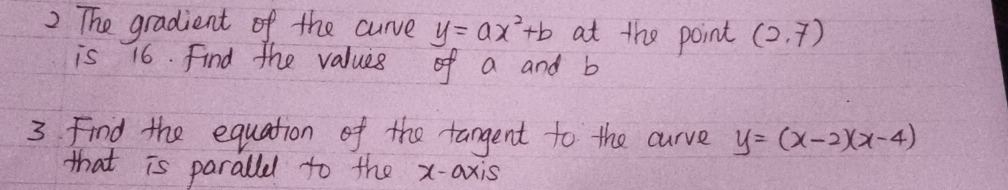 2 The gradient of the curve y=ax²+b at the point (2,7)
is 16. Find the values of a and b
3 Find the equation of the tangent to the curve y= (x-2)(x-4)
that is parallel to the x-axis